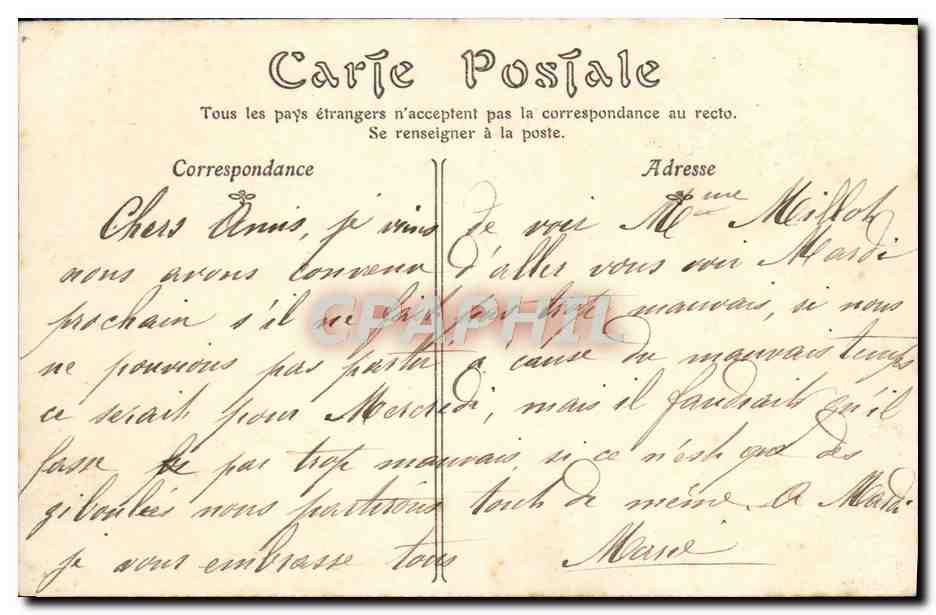 Carte Postale
Tous les pays étrangers n'acceptent pas la correspondance au recto.
Se renseigner à la poste.
Correspondance Adresse
Chers Amis, je viens de voir Mme Millot
nous avons convenu d'aller vous voir Mardi
prochain s'il ne fait pas trop mauvais, si nous
ne pouvions pas partir à cause du mauvais temps
ce serait pour Mercredi, mais il faudrait qu'il
fasse pas trop mauvais, si ce n'est que des
giboulées nous partirons tout de même. A Mardi
je vous embrasse tous Marie
CPAPHIL